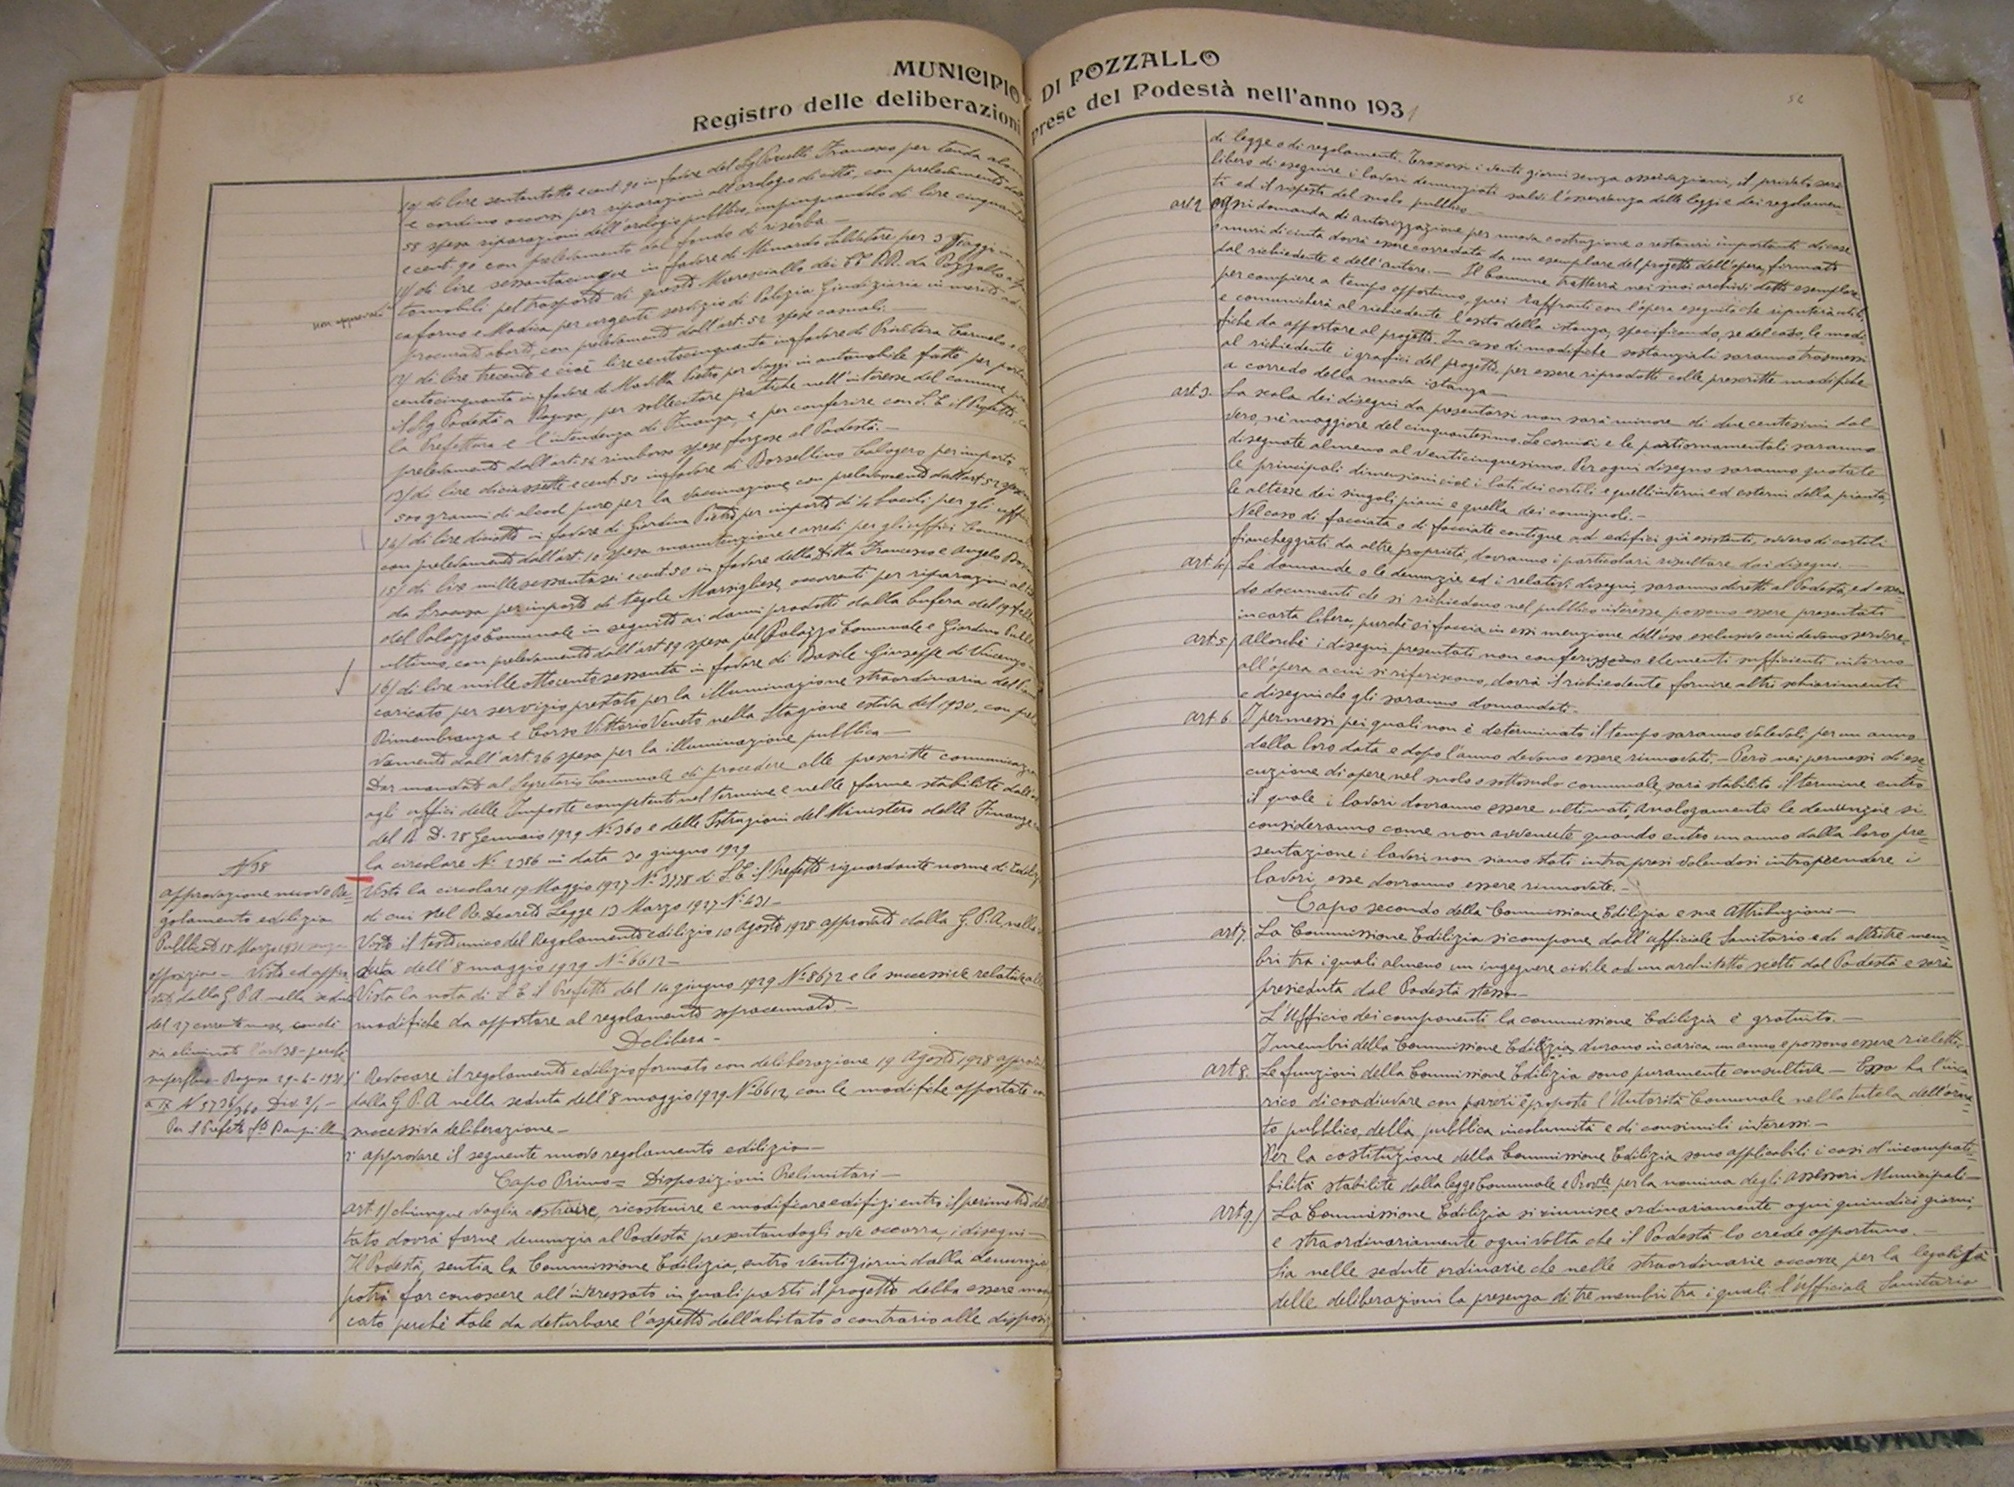 MUNICIPIO DI POZZALLO
Registro delle deliberazioni prese del Podestà nell'anno 1931
52
10) di lire settantotto e cent. 90 in favore del Sig. Porcelli Francesco per tenda
e cordino occorsi per riparazioni all'orologio di città, con prelevamento
58 spesa riparazioni dell'orologio pubblico, impinguandolo di lire cinquanta
e cent. 90 con prelevamento dal fondo di riserba.—
11) di lire sessantacinque in favore di Minardo Salvatore per 3 viaggi in
tomobili pel trasporto di questo Maresciallo dei CC. RR. da Pozzallo a
caforno e Modica per urgente servizio di Polizia Giudiziaria in merito ad
procurato aborto, con prelevamento dall'art. 52 spese casuali.—
12) di lire trecento e cioè lire centocinquanta in favore di Carmelo e
centocinquanta in favore di Pietro per viaggi in automobile fatte per
il Sig. Podestà a Ragusa, per sollecitare pratiche nell'interesse del comune
la Prefettura e l'intendenza di Finanza, e per conferire con S. E. il Prefetto,
prelevamento dall'art. 24 rimborso spese forzose al Podestà.—
13) di lire diciassette e cent. 50 in favore di Borsellino Calogero per importo
500 grammi di alcool puro per la vaccinazione con prelevamento dall'art 52
14) di lire diciotto in favore di Giardina Pietro per importo di 4 bacili per gli uffici
con prelevamento dall'art. 10 spesa manutenzione e arredi per gli uffici Comunali
15) di lire mille sessantasei e cent. 50 in favore della Ditta Francesco e Angelo
da Siracusa per importo di tegole Marsigliese occorrenti per riparazioni al
del Palazzo Comunale in seguito ai danni prodotti dalla bufera del 19
ultimo, con prelevamento dall'art 89 spesa pel Palazzo Comunale e Giardino
16) di lire mille ottocentosessanta in favore di Basile Giuseppe di Vincenzo
caricato per servizio prestato per la illuminazione straordinaria del
Rimembranza e Corso Vittorio Veneto nella stagione estiva del 1930, con
vamento dall'art. 26 spesa per la illuminazione pubblica—
Dar mandato al Segretario Comunale di procedere alle prescritte comunicazioni
agli uffici delle Imposte competenti nel termine e nelle forme stabilite
del R. D. 28 Gennaio 1929 N° 360 e delle Istruzioni del Ministero delle Finanze
la circolare N. 2386 in data 30 giugno 1929
N° 98
Approvazione nuovo Re-
golamento edilizio
Pubblicato 15 Marzo 1931 senza
opposizione — Visto ed appro-
vato dalla G P A nella seduta
del 27 corrente mese, condi
sia eliminato l'art 38 — perchè
superfluo — Ragusa 29-6-1931
N 5736/360 Div. 2/1 —
Per il Prefetto
Vista la circolare 19 Maggio 1927 N° 3778 di S. E. il Prefetto riguardante norme di
di cui nel R. Decreto Legge 13 Marzo 1927 N° 431—
Visto il testo unico del Regolamento edilizio 10 Agosto 1928 approvato dalla G. P. A. nella
duta dell'8 maggio 1929 N° 6612—
Vista la nota di S. E. il Prefetto del 14 giugno 1929 N° 8672 e le successive relative
modifiche da apportare al regolamento sopracennato.—
Delibera—
1° Revocare il regolamento edilizio formato con deliberazione 19 Agosto 1928
dalla G. P. A nella seduta dell'8 maggio 1929 N° 6612 con le modifiche apportate
successiva deliberazione—
2° approvare il seguente nuovo regolamento edilizio—
Capo Primo = Disposizioni Preliminari—
art. 1) chiunque voglia costruire, ricostruire e modificare edifizi entro il perimetro
tato dovrà farne denunzia al Podestà presentandogli ove occorra, i disegni—
Il Podestà, sentia la Commissione Edilizia, entro venti giorni dalla denunzia
potrà far conoscere all'interessato in quali parti il progetto debba essere
cato perchè tale da deturbare l'aspetto dell'abitato o contrario alle
di legge o di regolamenti. Trascorsi i venti giorni senza osservazioni, il privato sarà
libero di eseguire i lavori denunziati salvo l'osservanza delle leggi e dei regolamen-
ti ed il rispetto del suolo pubblico—
art 2. Ogni domanda di autorizzazione per nuova costruzione o restauri importanti di case
o muri di cinta dovrà essere corredata da un esemplare del progetto dell'opera, firmato
dal richiedente e dell'autore.— Il Comune tratterrà nei suoi archivi detto esemplare
per compiere a tempo opportuno, quei raffronti con l'opera eseguita che reputerà utili
e comunicherà al richiedente l'esito della istanza, specificando, se del caso, le modi-
fiche da apportare al progetto. In caso di modifiche sostanziali saranno trasmessi
al richiedente i grafici del progetto per essere riprodotti colle prescritte modifiche
a corredo della nuova istanza—
art. 3. La scala dei disegni da presentarsi non sarà minore di due centesimi dal
vero, nè maggiore del cinquantesimo. Le cornici e le parti ornamentali saranno
disegnate almeno al venticinquesimo. Per ogni disegno saranno quotate
le principali dimensioni cioè i lati dei cortili e quelli interni ed esterni della pianta,
le altezze dei singoli piani e quella dei comignoli.—
Nel caso di facciata o di facciate contigue ad edifici già esistenti, ovvero di cortili
fiancheggiati da altre proprietà, dovranno i particolari risultare dai disegni.—
art. 4) Le domande o le denunzie ed i relativi disegni saranno diretti al Podestà, ed essen-
do documenti che si richiedono nel pubblico interesse, possono essere presentati
in carta libera, purchè si faccia in essi menzione dell'uso esclusivo cui devono servire.
art. 5) Allorchè i disegni presentati non conferissero elementi sufficienti intorno
all'opera a cui si riferiscono, dovrà il richiedente fornire altri schiarimenti
e disegni che gli saranno domandati.—
art. 6. I permessi pei quali non è determinato il tempo saranno valevoli per un anno
dalla loro data e dopo l'anno devono essere rinnovati.— Però nei permessi di ese-
cuzione di opere nel suolo o sottosuolo comunale, sarà stabilito il termine entro
il quale i lavori dovranno essere ultimati, analogamente le denunzie si
consideranno come non avvenute quando entro un anno dalla loro pre-
sentazione i lavori non siano stati intrapresi volendosi intraprendere i
lavori, esse dovranno essere rinnovate.—
Capo secondo della Commissione Edilizia e sue Attribuzioni—
art. 7. La Commissione Edilizia si compone dall'ufficiale Sanitario e di altri tre mem-
bri tra i quali almeno un ingegnere civile od un architetto scelti dal Podestà e sarà
presieduta dal Podestà stesso—
L'Ufficio dei componenti la commissione Edilizia è gratuito.—
I membri della Commissione Edilizia, durano in carica un anno e possono essere rieletti.
art 8. Le funzioni della Commissione Edilizia sono puramente consultive.— Essa ha l'inca-
rico di coadiuvare con pareri e proposte l'Autorità Comunale nella tutela dell'orna-
to pubblico, della pubblica incolumità e di consimili interessi—
Per la costituzione della Commissione Edilizia sono applicabili i casi d'incompati-
bilità stabilite dalla legge Comunale e Prov.le per la nomina degli Assessori Municipali—
art. 9.) La Commissione Edilizia si riunisce ordinariamente ogni quindici giorni,
e straordinariamente ogni volta che il Podestà lo crede opportuno.—
Sia nelle sedute ordinarie che nelle straordinarie occorre per la legalità
delle deliberazioni la presenza di tre membri tra i quali l'Ufficiale Sanitario